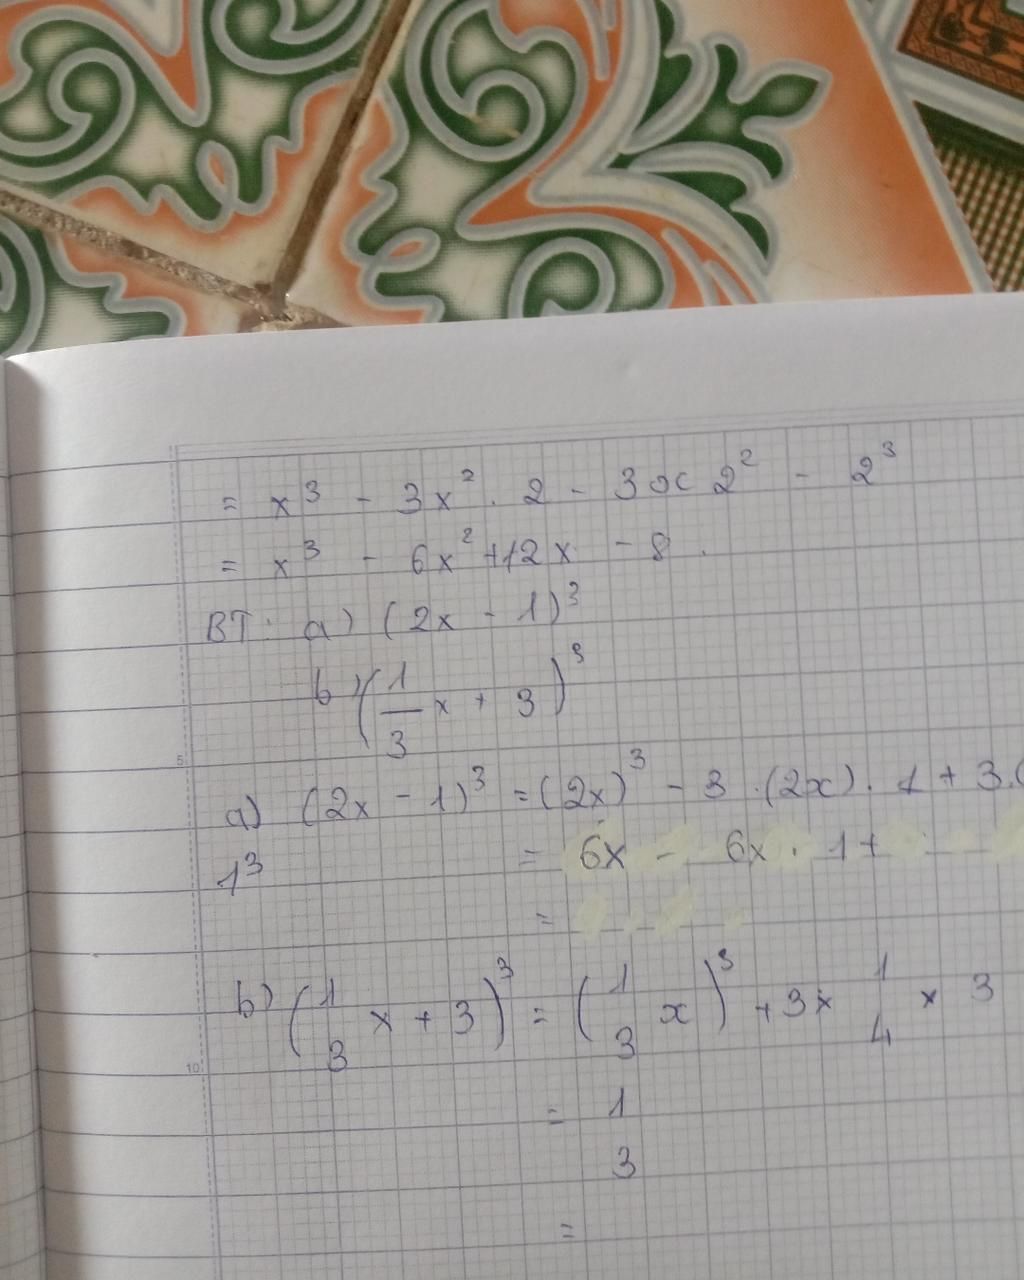 = x³ - 3x². 2 - 3x 2² - 2³
= x³ - 6x² +12x - 8.
BT: a) (2x - 1)³
b) (1/3 x + 3)³
5
a) (2x - 1)³ = (2x)³ - 3 .(2x). 1 + 3.(
1³ = 6x - 6x . 1 +
=
b) (1/3 x + 3)³ = (1/3 x)³ + 3 x 1/4 x 3
10
= 1/3
=